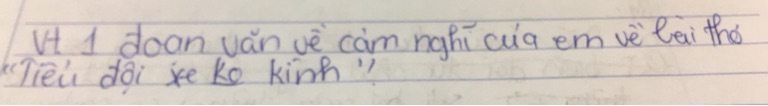 Vt 1 đoạn văn về cảm nghĩ của em về bài thơ
"Tiểu đội xe ko kính"